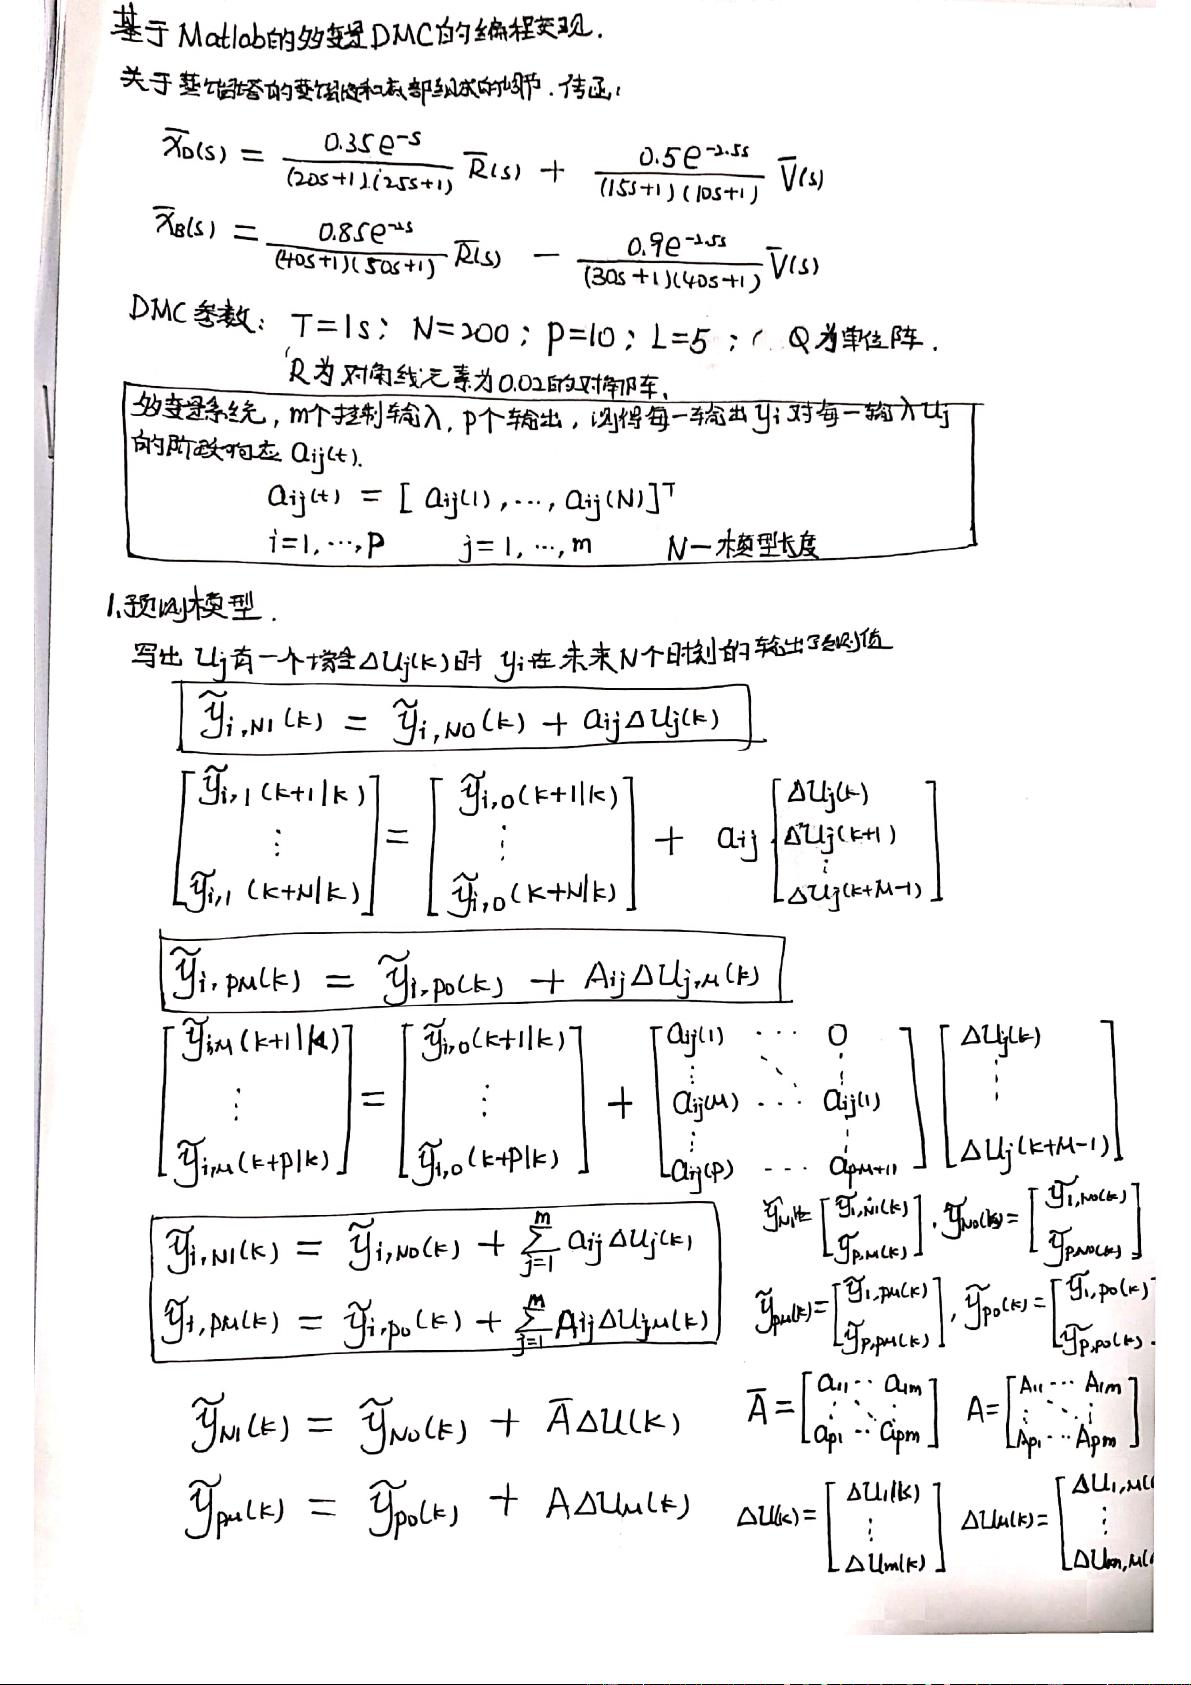 基于Matlab的多变量DMC的编程实现.
关于蒸馏塔的蒸馏液和底部组成的调节.传函:
x̄D(s) = 0.35e^-s / (20s+1)(25s+1) R̄(s) + 0.5e^-2.5s / (15s+1)(10s+1) V̄(s)
x̄B(s) = 0.85e^-2s / (40s+1)(50s+1) R̄(s) − 0.9e^-2.5s / (30s+1)(40s+1) V̄(s)
DMC参数: T=1s; N=200; p=10; L=5; Q为单位阵.
R为对角线元素为0.02的对角阵.
多变量系统,m个控制输入,p个输出,测得每一输出yi对每一输入uj
的阶跃响应aij(t).
aij(t) = [aij(1), ..., aij(N)]^T
i=1, ..., p j=1, ..., m N—模型长度
1.预测模型.
写出uj有一个增量Δuj(k)时yi在未来N个时刻的输出预测值
ỹi,N1(k) = ỹi,N0(k) + aijΔuj(k)
[ỹi,1(k+1|k) ⋮ ỹi,1(k+N|k)] = [ỹi,0(k+1|k) ⋮ ỹi,0(k+N|k)] + aij [Δuj(k) Δuj(k+1) ⋮ Δuj(k+M-1)]
ỹi,PM(k) = ỹi,P0(k) + AijΔuj,M(k)
[ỹi,M(k+1|k) ⋮ ỹi,M(k+P|k)] = [ỹi,0(k+1|k) ⋮ ỹi,0(k+P|k)] + [aij(1) ··· 0 ⋮ ⋱ ⋮ aij(M) ··· aij(1) ⋮ ⋮ aij(P) ··· a(P-M+1)] [Δuj(k) ⋮ Δuj(k+M-1)]
ỹi,N1(k) = ỹi,N0(k) + Σ(j=1..m) aijΔuj(k)
ỹi,PM(k) = ỹi,P0(k) + Σ(j=1..m) AijΔuj,M(k)
ỹN1(k) = [ỹ1,N1(k) ỹp,N1(k)], ỹN0(k) = [ỹ1,N0(k) ỹp,N0(k)]
ỹPM(k) = [ỹ1,PM(k) ỹp,PM(k)], ỹP0(k) = [ỹ1,P0(k) ỹp,P0(k)]
ỹN1(k) = ỹN0(k) + ĀΔu(k)
Ā = [a11 ·· a1m ⋮ ⋱ ⋮ ap1 ·· apm] A = [A11 ··· A1m ⋮ ⋱ ⋮ Ap1 ·· Apm]
ỹPM(k) = ỹP0(k) + AΔuM(k)
Δu(k) = [Δu1(k) ⋮ Δum(k)] ΔuM(k) = [Δu1,M( ⋮ Δum,M(]